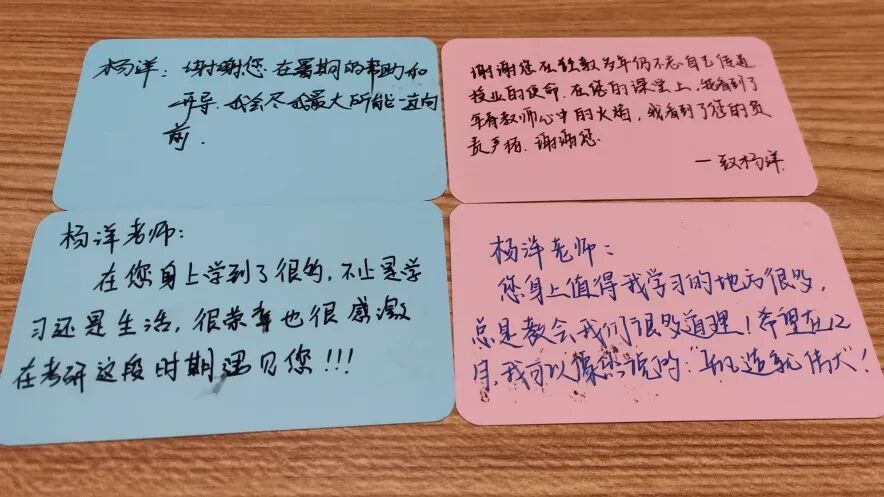 杨洋：谢谢您在暑期的帮助和
开导.我会尽我最大所能一直向
前.
谢谢您在执教多年仍不忘自己传道
授业的使命.在您的课堂上,我看到了
年青教师心中的火焰,我看到了您的负
责严格.谢谢您.
—致杨洋.
杨洋老师：
在您身上学到了很多,不止是学
习还是生活,很荣幸也很感激
在考研这段时期遇见您!!!
杨洋老师：
您身上值得我学习的地方很多,
总是教会我们很多道理!希望在12
月,我可以像您说的:"平凡造就伟大"!